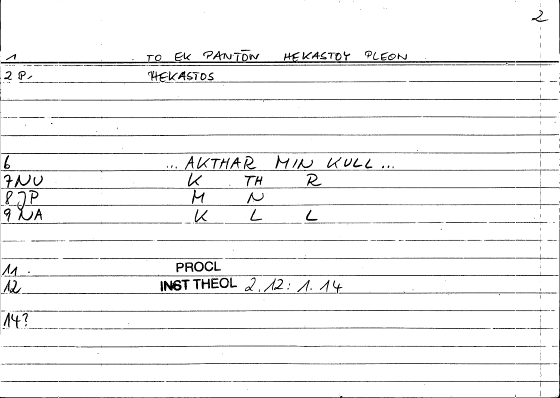 2
1 TO EK PANTŌN HEKASTOY PLEON
2 P. HEKASTOS
6 ... AKTHAR MIN KULL ...
7 NU K TH R
8 JP M N
9 NA K L L
11. PROCL
12 INST THEOL 2.12: 1.14
14?